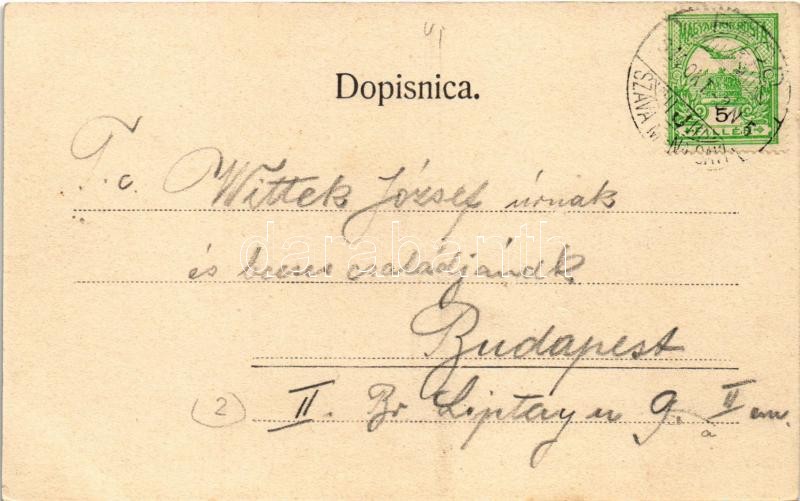 Dopisnica.
MAGYAR KIR. POSTA
5
FILLÉR
T. c. Wittek József úrnak
és becses családjának
Budapest
II. Br Liptay u 9. II em.
2
darabanth